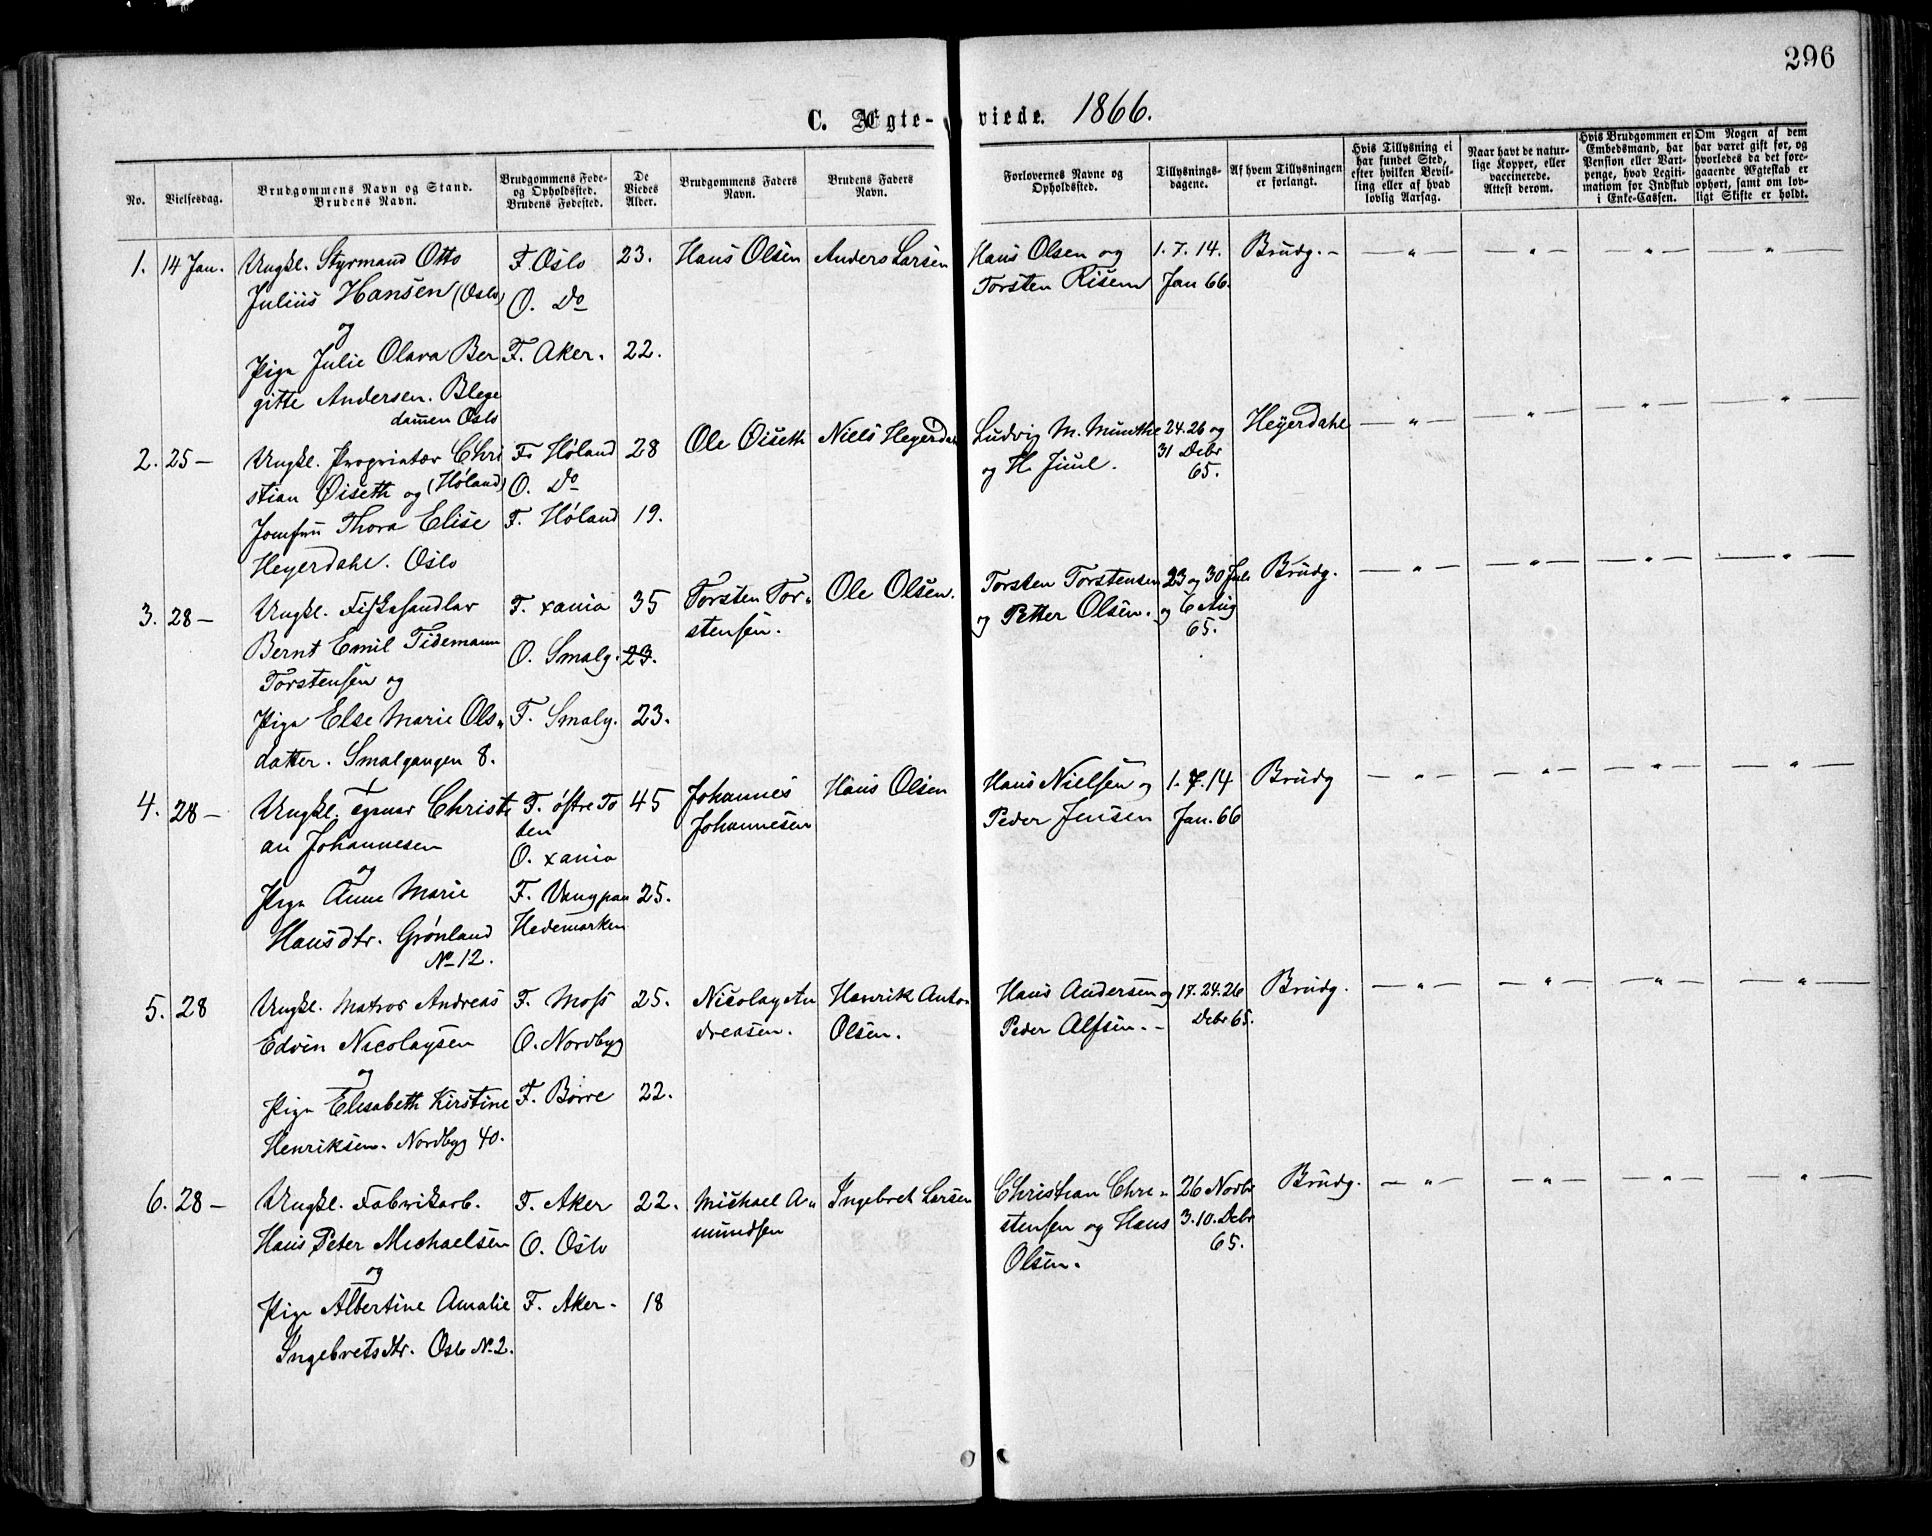 296
C. Ægte-viede. 1866.
No.
Vielsesdag.
Brudgommens Navn og Stand.
Brudens Navn.
Brudgommens Føde-
og Opholdssted.
Brudens Fødested.
De
Viedes
Alder.
Brudgommens Faders
Navn.
Brudens Faders
Navn.
Forlovernes Navne og
Opholdssted.
Tillysnings-
dagene.
Af hvem Tillysningen
er forlangt.
Hvis Tillysning ei
har fundet Sted,
efter hvilken Bevil-
ling eller af hvad
lovlig Aarsag.
Naar havt de natur-
lige Kopper, eller
vaccinerede.
Attest derom.
Hvis Brudgommen er
Embedsmand, har
Pension eller Vart-
penge, hvad Legiti-
mation for Indskud
i Enke-Cassen.
Om Nogen af dem
har været gift før, og
hvorledes da det fore-
gaaende Ægteskab er
ophørt, samt om lov-
ligt Skifte er holdt.
1. 14 Jan. Ungkl. Styrmand Otto F. Oslo 23. Hans Olsen Anders Larsen Hans Olsen og 1. 7. 14. Brudg. - — " — — " — — " — — " —
Julius Hansen (Oslo) O. Do Torsten Risem Jan 66.
og
Pige Julie Olava Ber F. Aker. 22.
gitte Andersen. Blege
damen Oslo
2. 25 — Ungkl. Proprietær Chri F. Høland 28 Ole Øiseth Niels Heyerdahl Ludvig M. Munthe 24. 26 og Heyerdahl — " — — " — — " — — " —
stian Øiseth og (Høland) O. Do og H. Juul. 31 Debr
65.
Jomfru Thora Elise F. Høland 19.
Heyerdahl. Oslo
3. 28 — Ungkl. Fiskehandlar F. xania 35 Torsten Tor- Ole Olsen. Torsten Torstensen 23 og 30 Juli Brudg. — " — — " — — " — — " —
Bernt Emil Tidemann O. Smalg. 23. stensen. og Petter Olsen. og 6 Aug
65.
Torstensen og
Pige Else Marie Ols- F. Smalg. 23.
datter. Smalgangen 8.
4. 28 — Ungkl. Tegner Christi F. østre To 45 Johannes Hans Olsen Hans Nielsen og 1. 7. 14 Brudg — " — — " — — " — — " —
an Johannesen ten Johannesen Peder Jensen Jan. 66
O. xania
og
Pige Anne Marie F. Vang paa 25.
Hansdtr. Grønland Hedemarken
No 12.
5. 28 Ungkl. Matros Andreas F. Moss 25. Nicolay An Henrik Anton Hans Andersen og 17. 24. 26 Brudg. — " — — " — — " — — " —
Edvin Nicolaysen O. Nordbyg dreasen. Olsen. Peder Alfsen. - Debr 65.
og
Pige Elisabeth Kirstine F. Borre 22.
Henriksen. Nordbyg 40.
6. 28 — Ungkl. Fabrikarb. F. Aker 22. Michael A- Ingebret Larsen Christian Chri- 26 Novbr Brudg. — " — — " — — " — — " —
Hans Peter Michaelsen O. Oslo mundsen stensen og Hans 3. 10. Debr
65.
Olsen.
og
Pige Albertine Amalie F. Aker- 18
Ingebretsdtr. Oslo No 2.